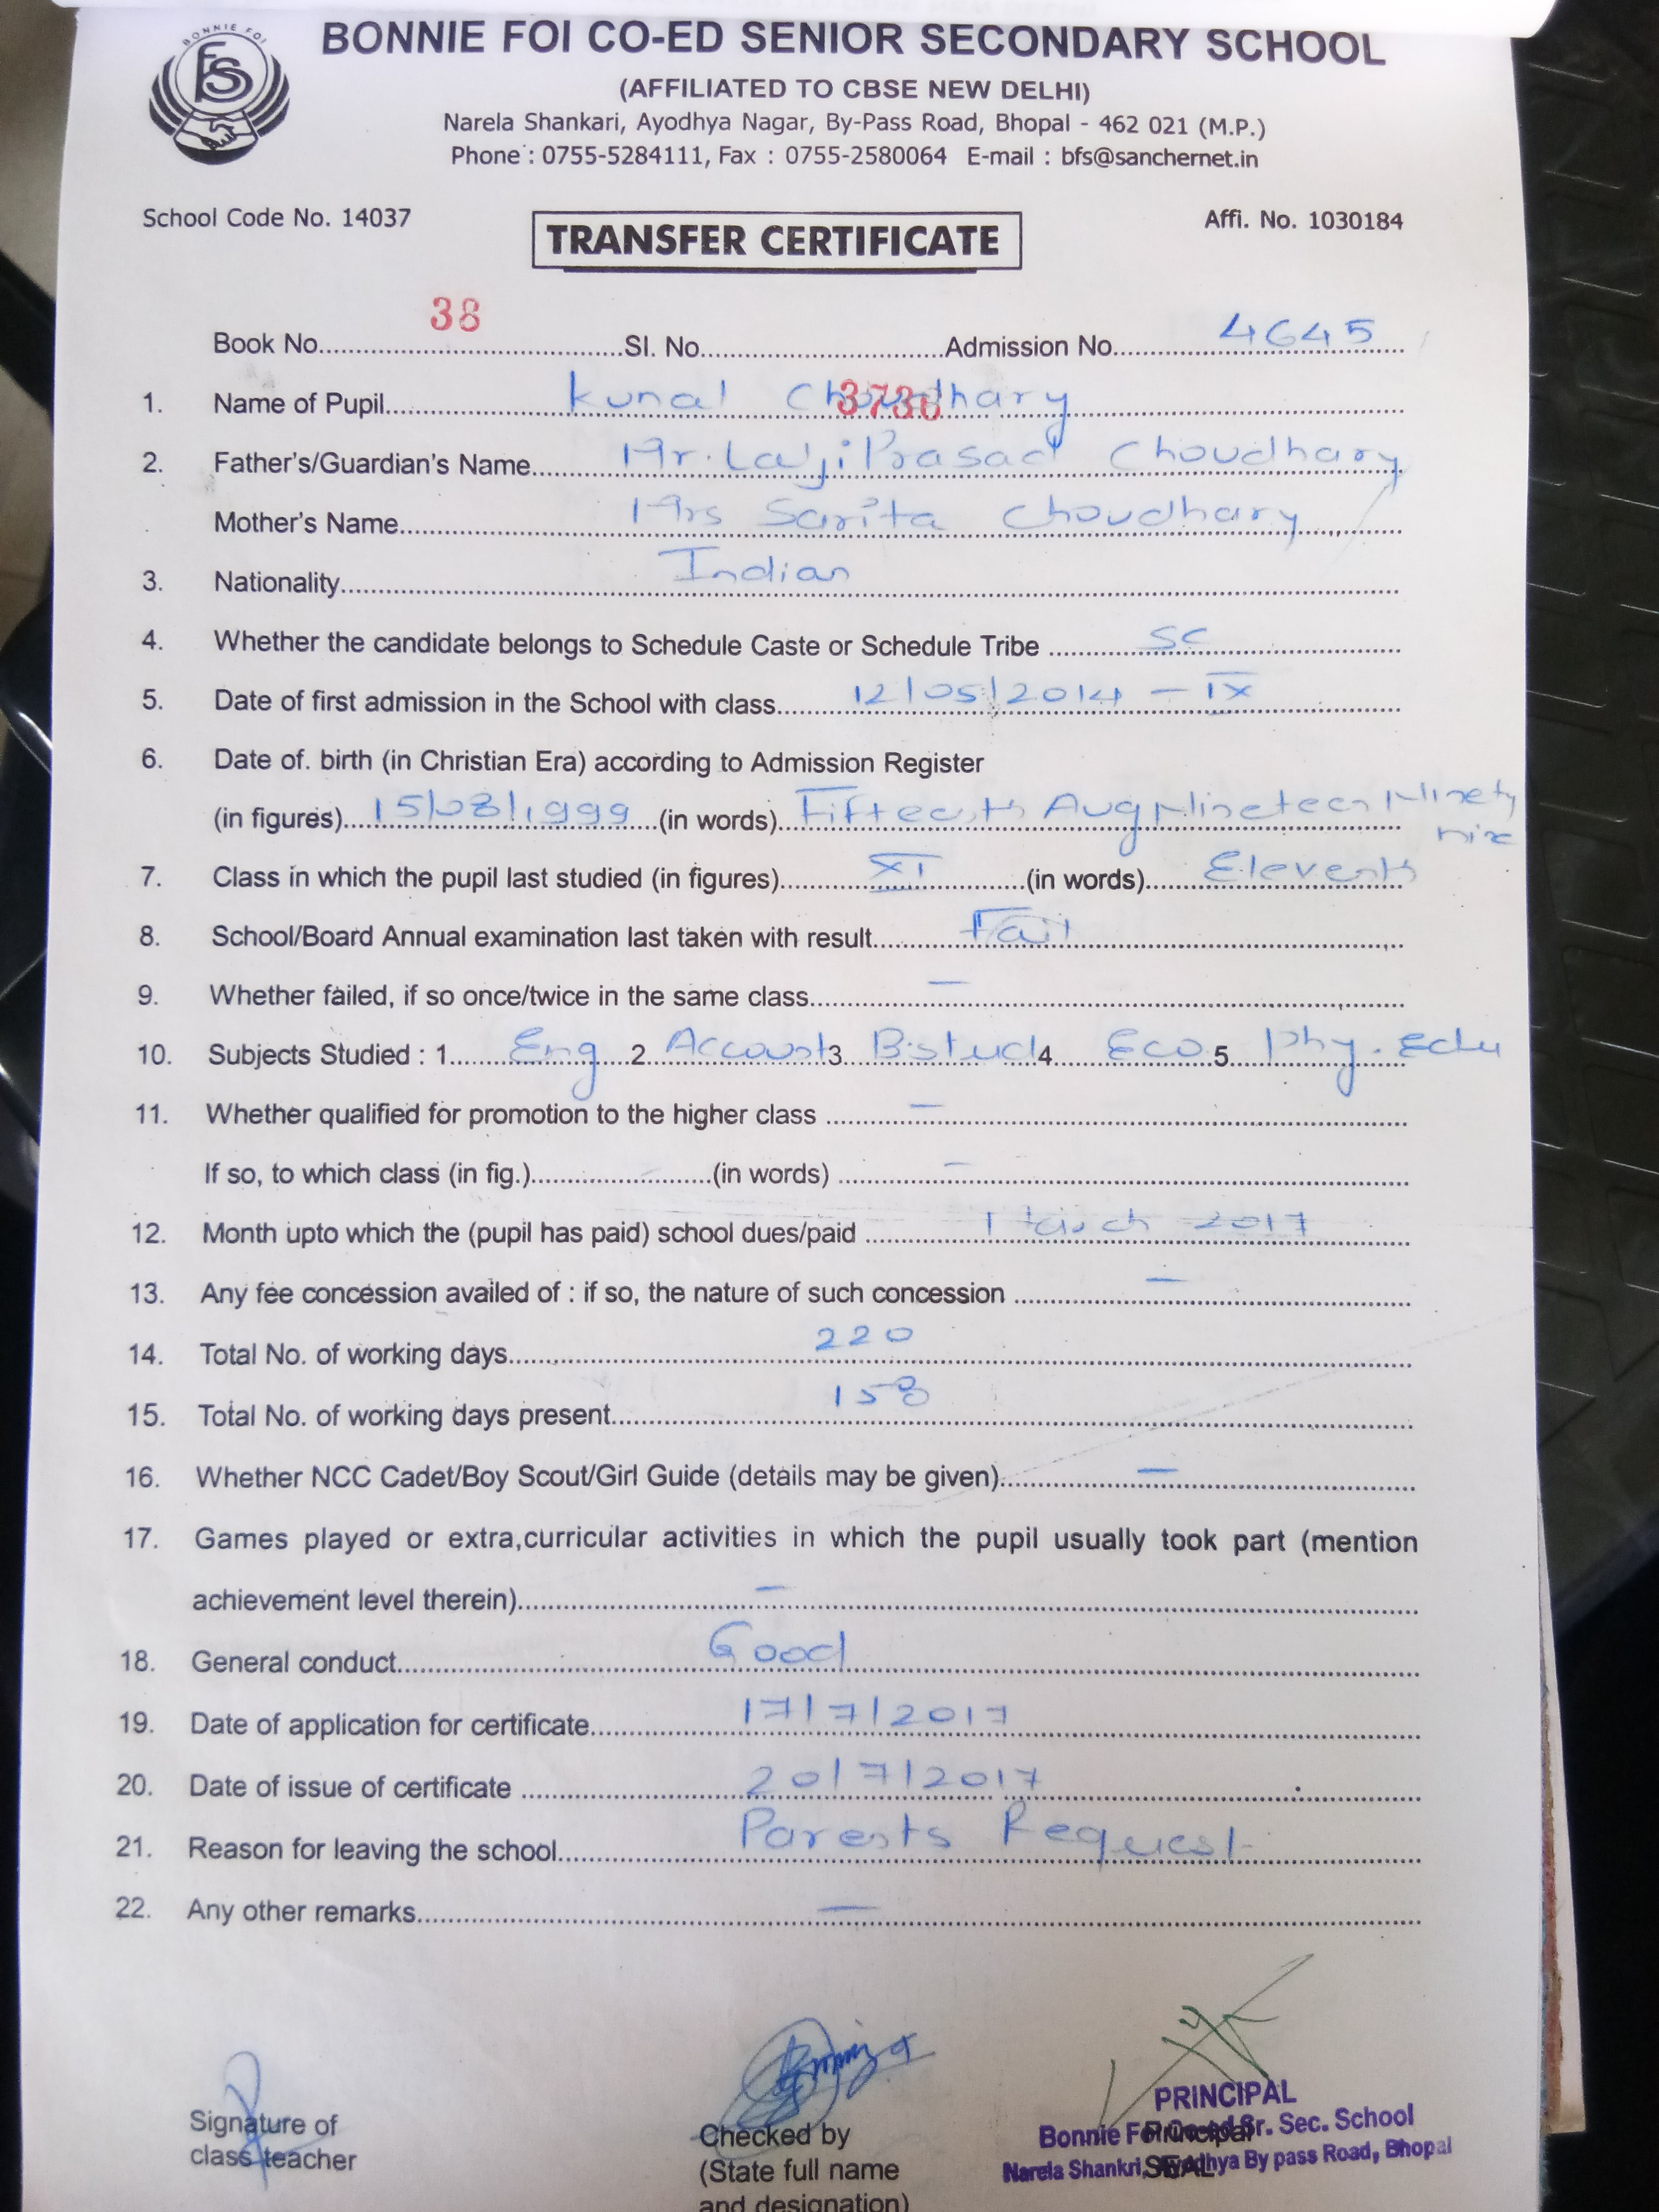 BONNIE FOI
FS
BONNIE FOI CO-ED SENIOR SECONDARY SCHOOL
(AFFILIATED TO CBSE NEW DELHI)
Narela Shankari, Ayodhya Nagar, By-Pass Road, Bhopal - 462 021 (M.P.)
Phone : 0755-5284111, Fax : 0755-2580064 E-mail : bfs@sanchernet.in
School Code No. 14037
Affi. No. 1030184
TRANSFER CERTIFICATE
Book No. 38 Sl. No. Admission No. 4645
3730
1. Name of Pupil Kunal Choudhary
2. Father's/Guardian's Name Mr. Lalji Prasad Choudhary
Mother's Name Mrs Sarita Choudhary
3. Nationality Indian
4. Whether the candidate belongs to Schedule Caste or Schedule Tribe SC
5. Date of first admission in the School with class 12/05/2014 - IX
6. Date of. birth (in Christian Era) according to Admission Register
(in figures) 15/08/1999 (in words) Fifteenth Aug Nineteen Ninety
nine
7. Class in which the pupil last studied (in figures) XI (in words) Eleventh
8. School/Board Annual examination last taken with result Fail
9. Whether failed, if so once/twice in the same class —
10. Subjects Studied : 1. Eng 2. Account 3. B.stud 4. Eco 5. Phy. Edu
11. Whether qualified for promotion to the higher class —
If so, to which class (in fig.) (in words) —
12. Month upto which the (pupil has paid) school dues/paid March 2017
13. Any fee concession availed of : if so, the nature of such concession —
14. Total No. of working days 220
15. Total No. of working days present 158
16. Whether NCC Cadet/Boy Scout/Girl Guide (details may be given) —
17. Games played or extra,curricular activities in which the pupil usually took part (mention
achievement level therein) —
18. General conduct Good
19. Date of application for certificate 17/7/2017
20. Date of issue of certificate 20/7/2017
21. Reason for leaving the school Parents Request
22. Any other remarks —
Signature of
class teacher
Checked by
(State full name
and designation)
Principal
SEAL
PRINCIPAL
Bonnie Foi Co-ed Sr. Sec. School
Narela Shankri, Ayodhya By pass Road, Bhopal